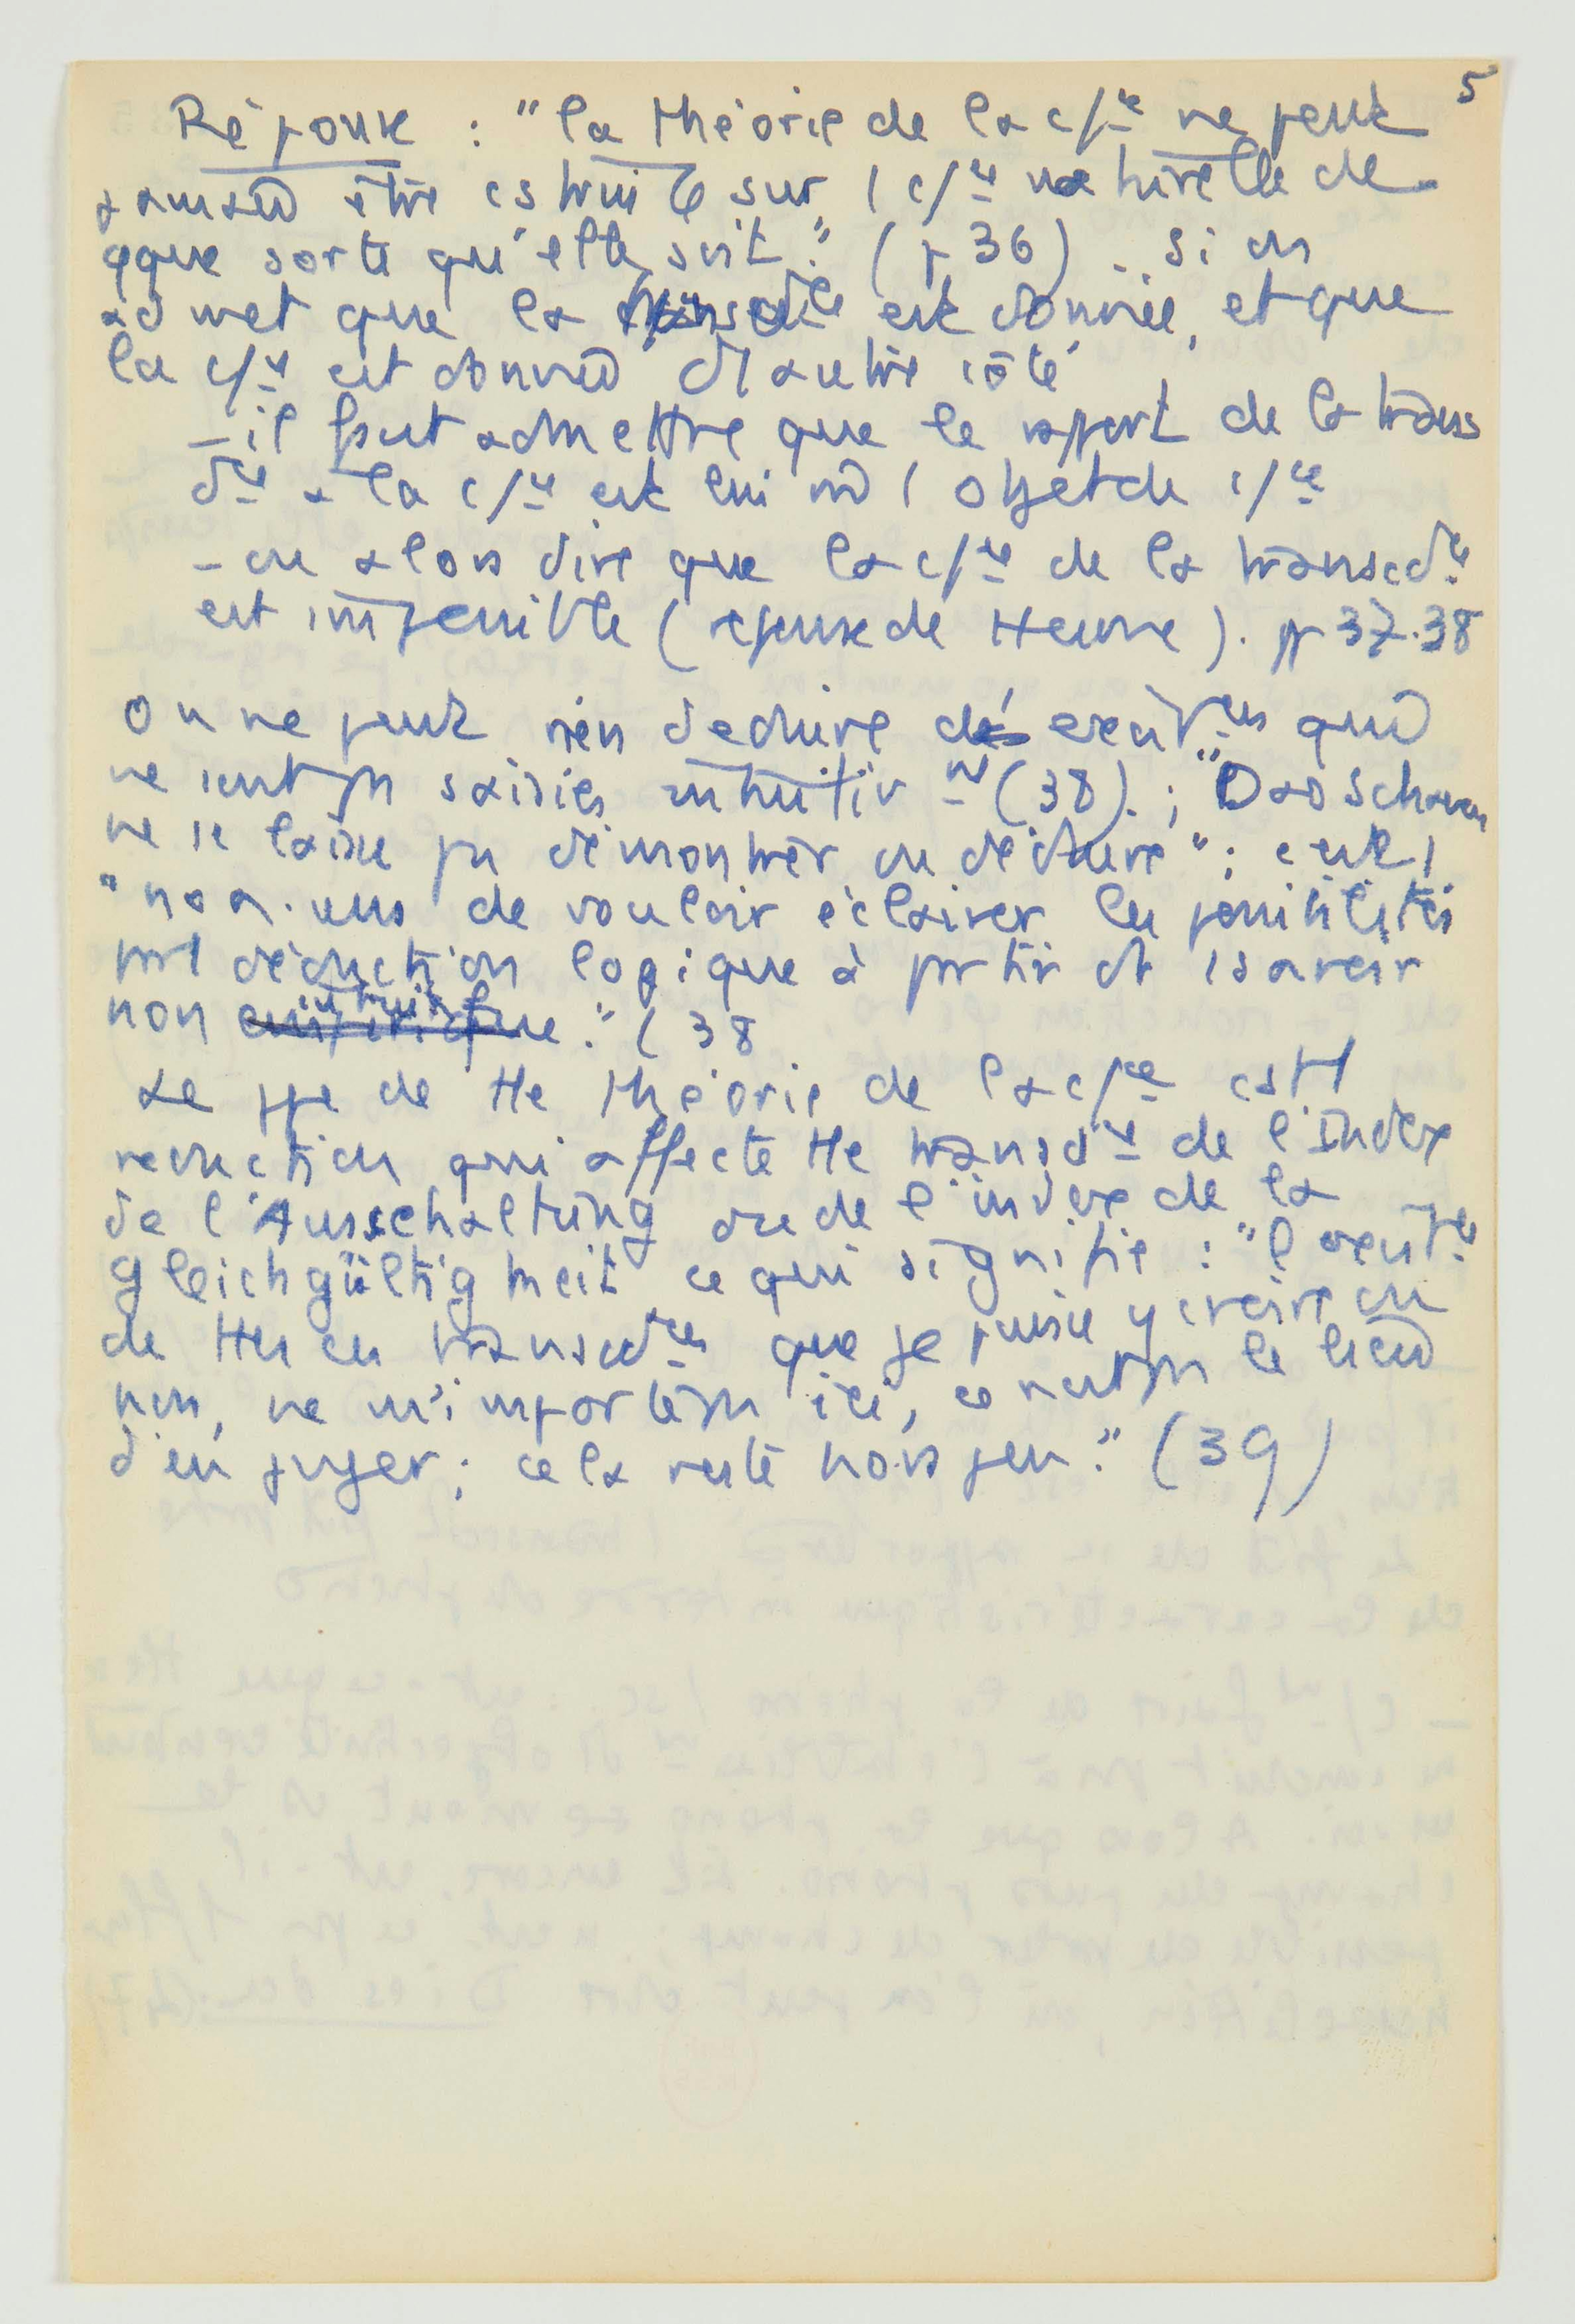 5
Réponse : "la théorie de la c/ce ne peut
jamais être cstruite sur 1 c/ce naturelle de
qque sorte qu'elle soit." (p 36) .. si on
admet que la transcdce est donnée, et que
la c/ce est donnée d'1 autre côté
– il faut admettre que le rapport de la trans
dce à la c/ce est lui m̂ 1 objet de c/ce
– ou alors dire que la c/ce de la transcdce
est impossible (reponse de Hume). pp 37.38
On ne peut rien deduire des existces qui
ne sont pas saisies intuitivnt (38). ; "Das Schauen
ne se laisse pas démontrer ou déduire" ; c'est 1
"non. sens de vouloir éclairer les possibilités
par 1 déduction logique à partir d'1 savoir
non intuitif." (38
Le ppe de tte théorie de la c/ce est 1
reduction qui affecte tte transdce de l'index
de l'Ausschaltung ou de l'index de la
gleichgültigkeit ce qui signifie : "l'existce
de ttes ces transcdces que je puisse y croire ou
non, ne m'importe pas ici, ce n'est pas le lieu
d'en juger ; cela reste hors jeu." (39)